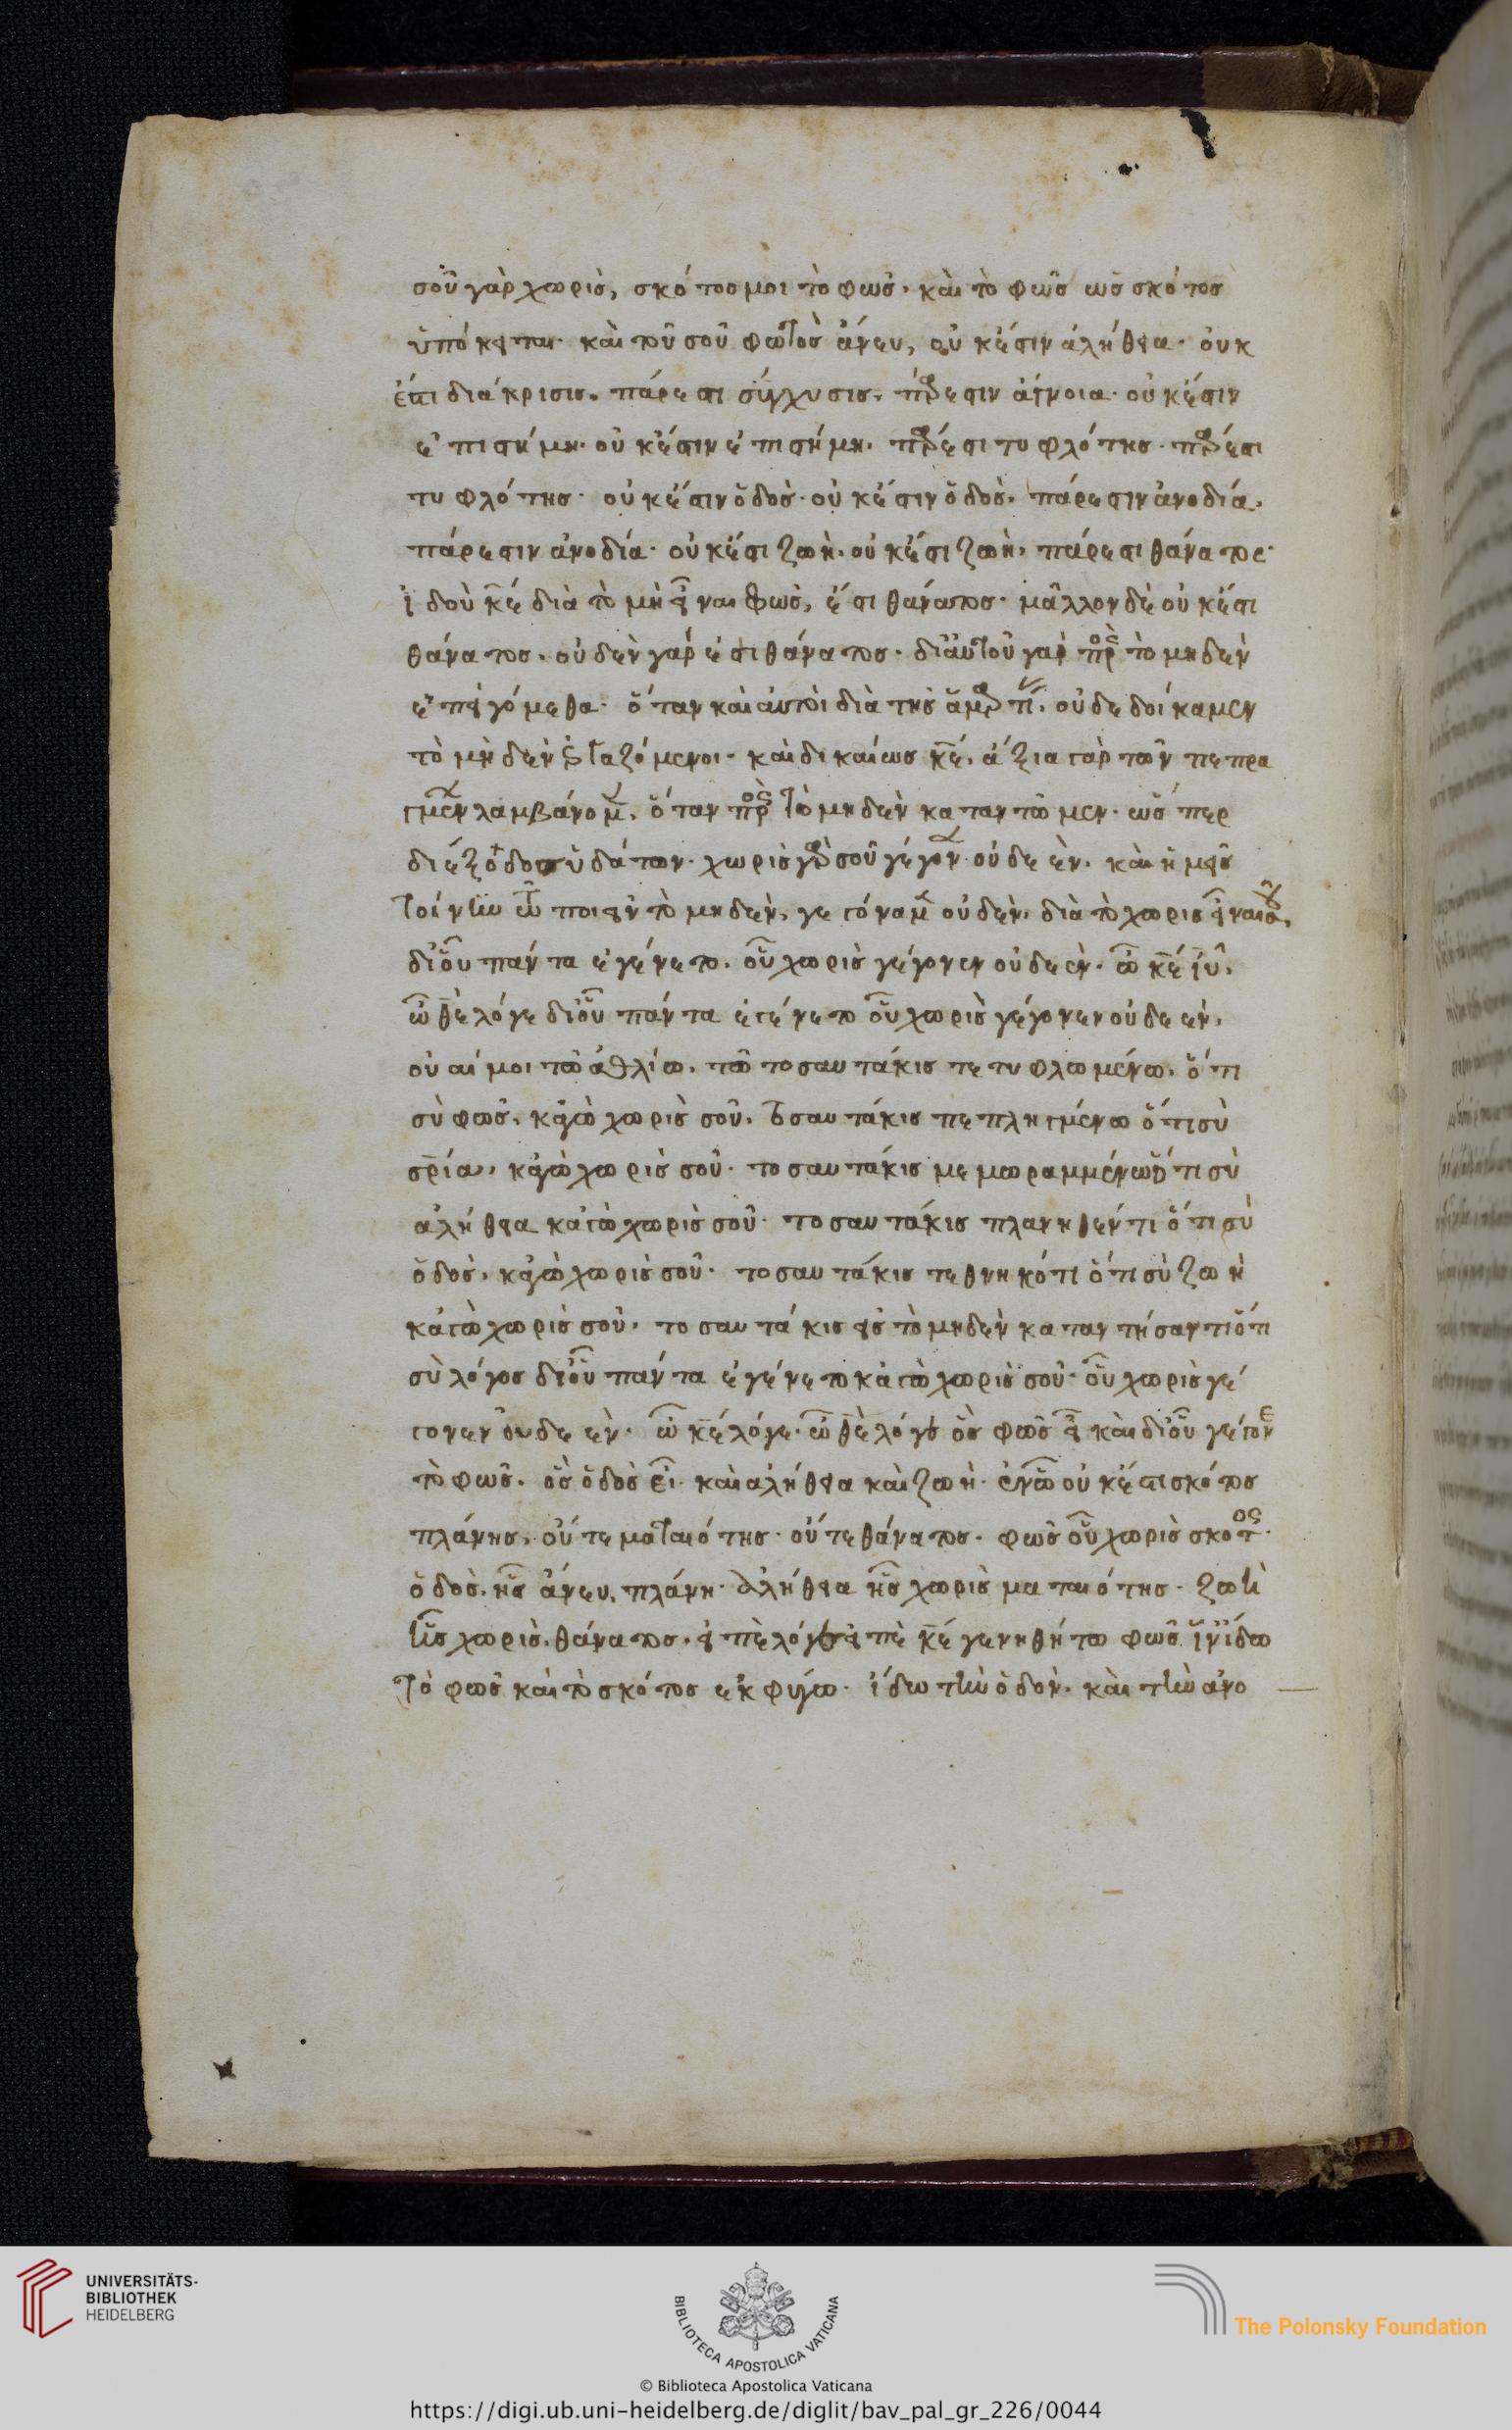 σοῦ γὰρ χωρὶς, σκότος μοι τὸ φῶς. καὶ τὸ φῶς ὡς σκότος
ὑπόκειται. καὶ τοῦ σοῦ φωτὸς ἄνευ, οὐκ ἔστιν ἀλήθεια. οὐκ
ἔστι διάκρισις. πάρεστι σύγχυσις, πάρεστιν ἄγνοια. οὐκ ἔστιν
ἐπιστήμη. οὐκ ἔστιν ἐπιστήμη. πάρεστι τυφλότης. πάρεστι
τυφλότης. οὐκ ἔστιν ὁδός. οὐκ ἔστιν ὁδός. πάρεστιν ἀνοδία.
πάρεστιν ἀνοδία. οὐκ ἔστι ζωή. οὐκ ἔστι ζωή, πάρεστι θάνατος.
ἰδοὺ κε διὰ τὸ μὴ εἶναι φῶς, ἔστι θάνατος. μᾶλλον δὲ οὐκ ἔστι
θάνατος. οὐδὲν γάρ ἐστι θάνατος. δι' αὐτοῦ γὰρ πρὸς τὸ μηδὲν
ἐπειγόμεθα. ὅταν καὶ αὐτοὶ διὰ τῆς ἁμαρτι. οὐ δεδοίκαμεν
τὸ μὴδὲν ἐργαζόμενοι. καὶ δικαίως κε. ἄξια γὰρ τῶν πεπρα
γμεν λαμβάνομ. ὅταν πρὸς τὸ μηδὲν καταντῶμεν. ὥσπερ
διέξοδος ὑδάτων. χωρὶς γὰρ σοῦ γέγον οὐδε ἕν. καὶ ἡμεῖς
τοίνυν τῷ ποιεῖν τὸ μηδὲν, γεγόναμ οὐδὲν. διὰ τὸ χωρὶς εἶναι σοῦ,
δι' οὗ πάντα ἐγένετο. οὗ χωρὶς γέγονεν οὐδε ἕν. ὦ κε ιυ.
ὦ θε λόγε δι' οὗ πάντα ἐγένετο οὗ χωρὶς γέγονεν οὐδε ἕν.
οὐαί μοι τῷ ἀθλίῳ. τῷ τοσαυτάκις τετυφλωμένω. ὅτι
σὺ φῶς. κἀγὼ χωρὶς σοῦ. τοσαυτάκις πεπληγμένω ὅτι σὺ
σρία. κἀγὼ χωρὶς σοῦ. τοσαυτάκις μεμωραμμένω ὅτι σὺ
ἀλήθεια κἀγὼ χωρὶς σοῦ. τοσαυτάκις πλανηθέντι ὅτι σὺ
ὁδός. κἀγὼ χωρὶς σοῦ. τοσαυτάκις τεθνηκότι ὅτι σὺ ζωὴ
κἀγὼ χωρὶς σοῦ. τοσαυτάκις εἰς τὸ μηδὲν καταντήσαντι ὅτι
σὺ λόγος δι' οὗ πάντα ἐγένετο κἀγὼ χωρὶς σοῦ. οὗ χωρὶς γέ
γονεν οὐδε ἕν. ὦ κε λόγε. ὦ θε λόγε ὃς φῶς εἶ καὶ δι' οὗ γέγονε
τὸ φῶς. ὃς ὁδὸς εἶ. καὶ ἀλήθεια καὶ ζωή. ἐν ᾧ οὐκ ἔστι σκότος
πλάνης, οὔτε ματαιότης. οὔτε θάνατος. φῶς οὗ χωρὶς σκότος.
ὁδός. ἧς ἄνευ, πλάνη. ἀλήθεια ἧς χωρὶς ματαιότης. ζωὴ
ἧς χωρὶς. θάνατος. εἰπὲ λόγε εἰπὲ κε γενηθήτω φῶς ἵν' ἴδω
τὸ φῶς καὶ τὸ σκότος ἐκφύγω. ἴδω τὴν ὁδὸν. καὶ τὴν ἀνο
UNIVERSITÄTS-
BIBLIOTHEK
HEIDELBERG
BIBLIOTECA APOSTOLICA VATICANA
The Polonsky Foundation
© Biblioteca Apostolica Vaticana
https://digi.ub.uni-heidelberg.de/diglit/bav_pal_gr_226/0044